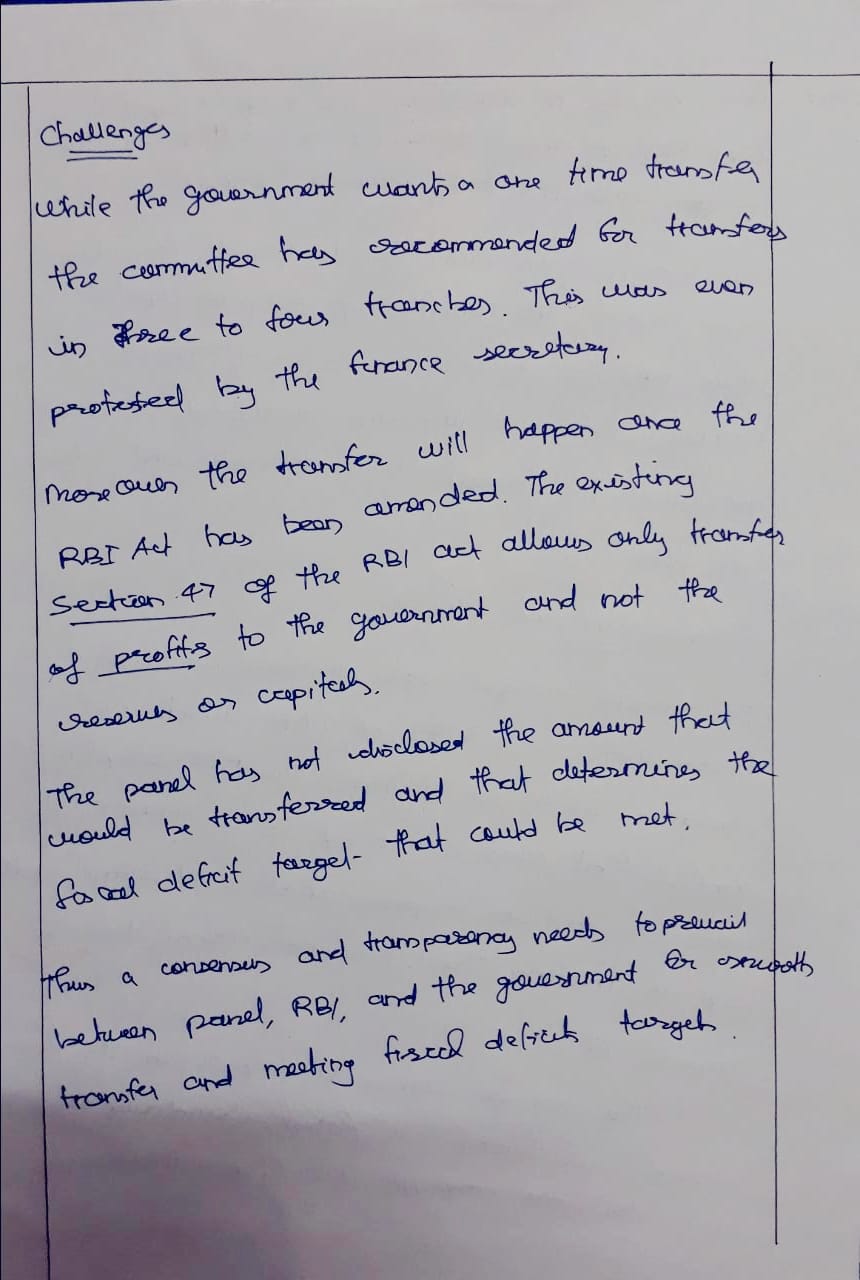 Challenges
While the government wants a one time transfer
the committee has recommended for transfers
in three to four tranches. This was even
protested by the finance secretary.
Moreover the transfer will happen once the
RBI Act has been amended. The existing
Section 47 of the RBI act allows only transfer
of profits to the government and not the
reserves or capitals.
The panel has not disclosed the amount that
would be transferred and that determines the
fiscal deficit target that could be met.
Thus a consensus and transparency needs to prevail
between panel, RBI, and the government for smooth
transfer and meeting fiscal deficits targets.